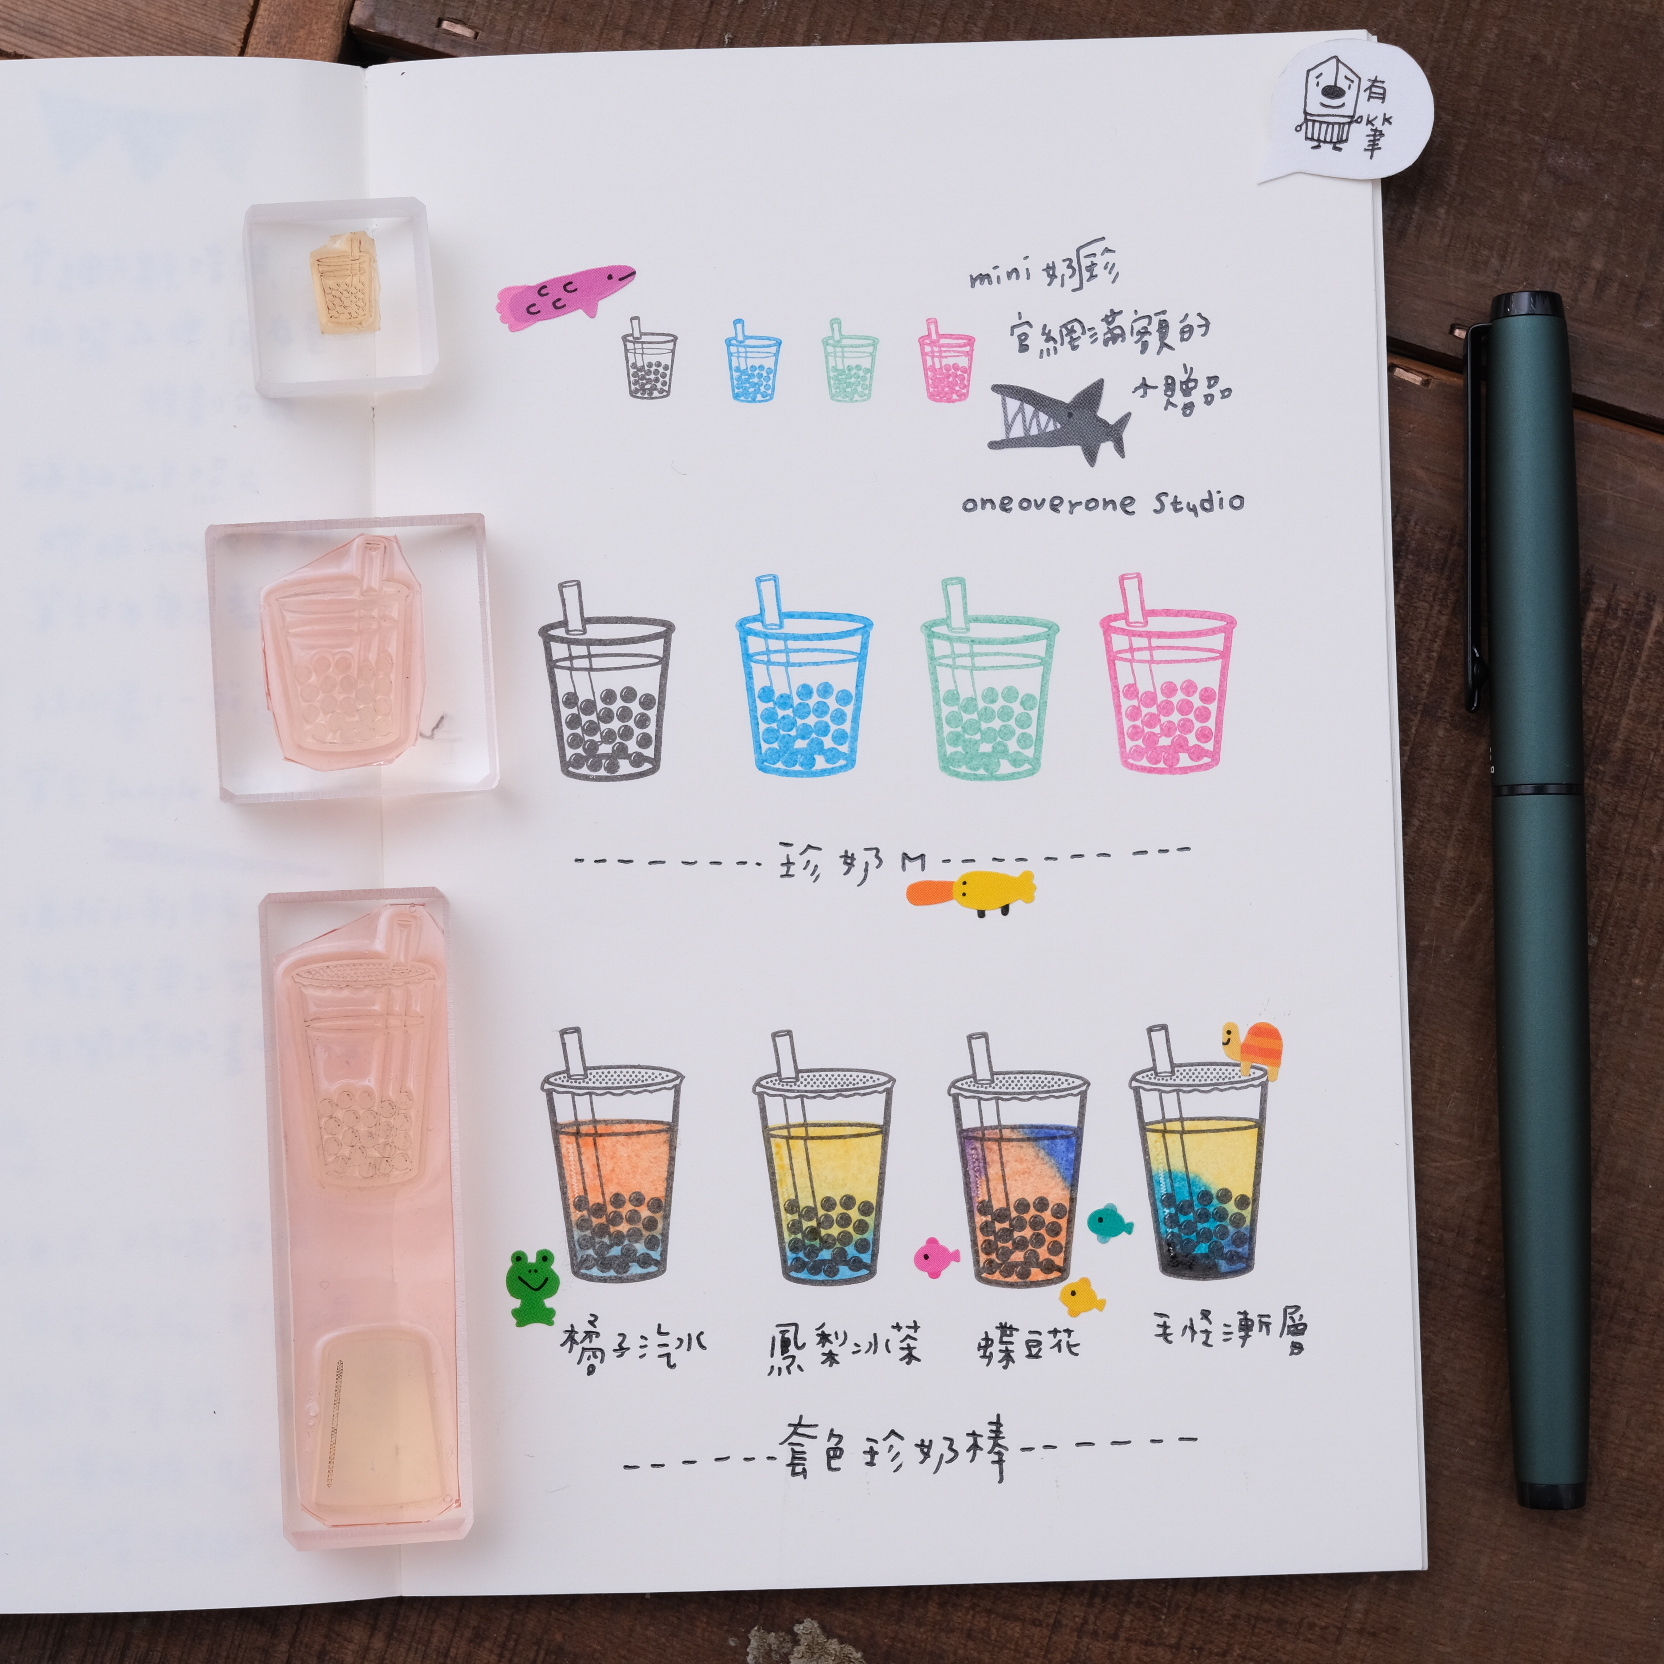 有
筆
mini 奶珍
官網滿額的
小贈品
oneoverone Studio
珍奶M
橘子汽水
鳳梨冰茶
蝶豆花
毛怪漸層
套色珍奶棒